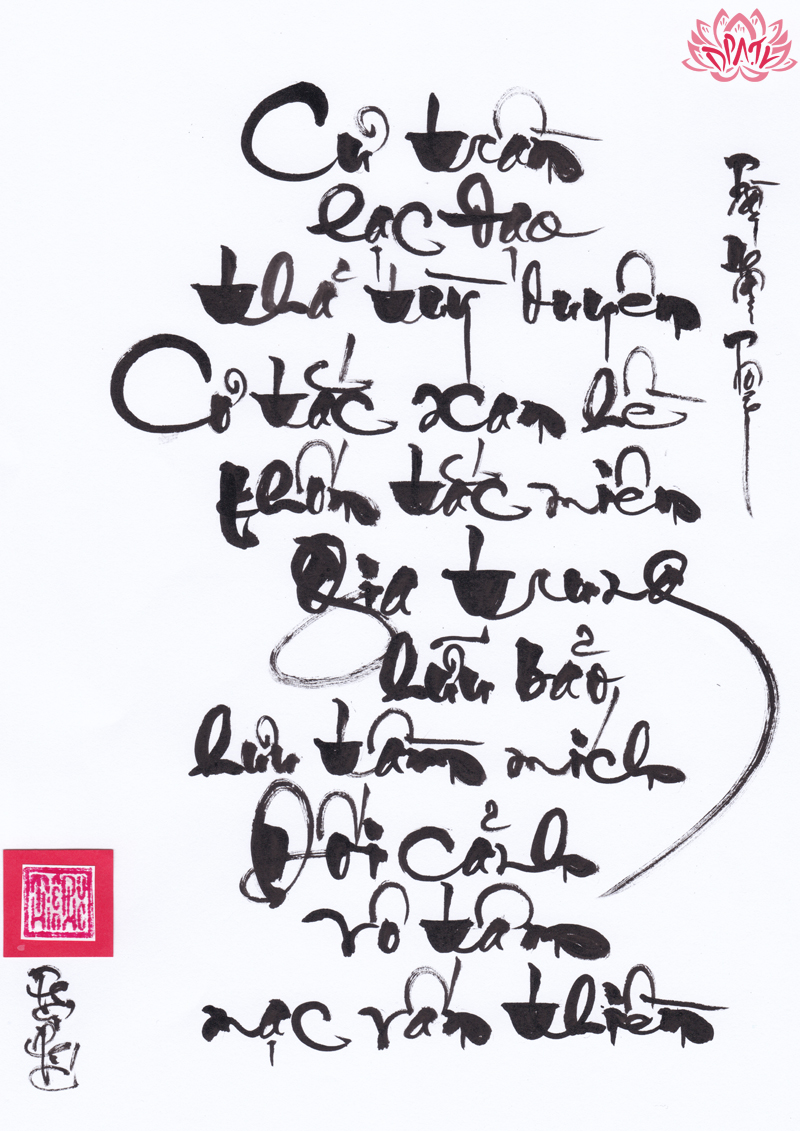 Cư trần
lạc đạo
thả tùy duyên
Cơ tắc xan hề
khốn tắc miên
Gia trung
hữu bảo
hưu tầm mích
Đối cảnh
vô tâm
mạc vấn thiền
Trần
Nhân
Tông